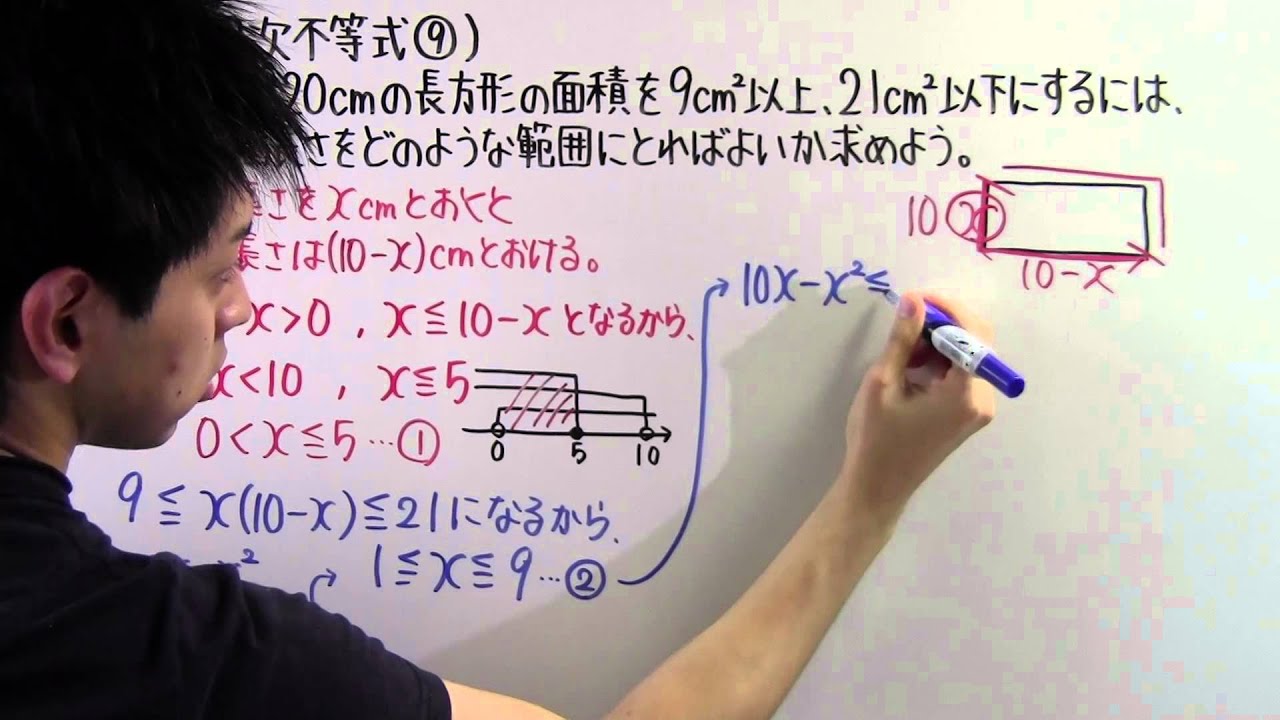 次不等式⑨)
20cmの長方形の面積を9cm²以上、21cm²以下にするには、
さをどのような範囲にとればよいか求めよう。
長さをxcmとおくと
長さは(10-x)cmとおける。
x>0 , x≦10-xとなるから、
x<10 , x≦5
0<x≦5…①
0 5 10
9≦x(10-x)≦21になるから、
1≦x≦9…②
10x-x²≦
10 x
10-x